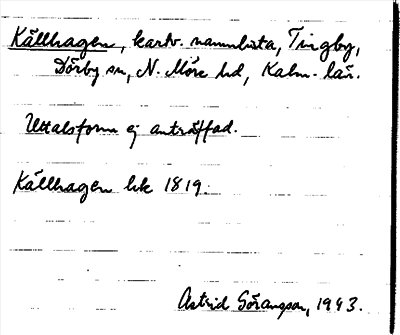 Källhagen, kartv. namnlista, Tingby,
Dörby sn, N. Möre hd, Kalm. län.
Uttalsform ej anträffad.
Källhagen hk 1819.
Astrid Göransson, 1943.